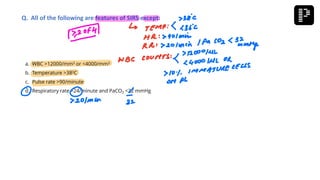 Q. All of the following are features of SIRS except:
≥ 2 of 4
→ TEMP: < >38°C
<36°C
HR: >90/min
RR: >20/min / PaCO₂ < 32 mmHg
WBC COUNTS: < >12000/μL
<4000/μL OR
>10% IMMATURE CELLS
ON PS
a. WBC >12000/mm³ or <4000/mm³
b. Temperature >38°C
c. Pulse rate >90/minute
d. Respiratory rate >24/minute and PaCO₂ <22 mmHg
>20/min
32